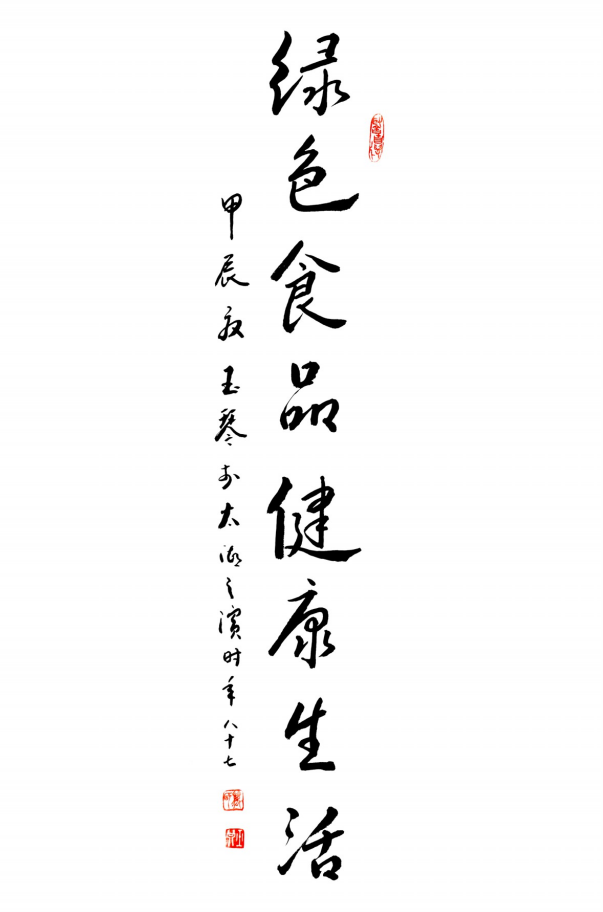 绿色食品健康生活
甲辰玉琴於太湖之濱时年八十七